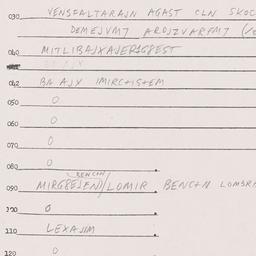 030 VENSFALTARAJN AGAST CLN SKOC
DEMEJVM7 ARDJZVARFM7
040 MITLIBAJXAJER1G8EST
042 BN AJX IMIRC+IS+EM
050 0
060 0
070 0
080 0
BENC+N
090 MIRG8EJEND/LOMIR BENC+N LOMSRM
100 0
110 LEXAJIM
120 0